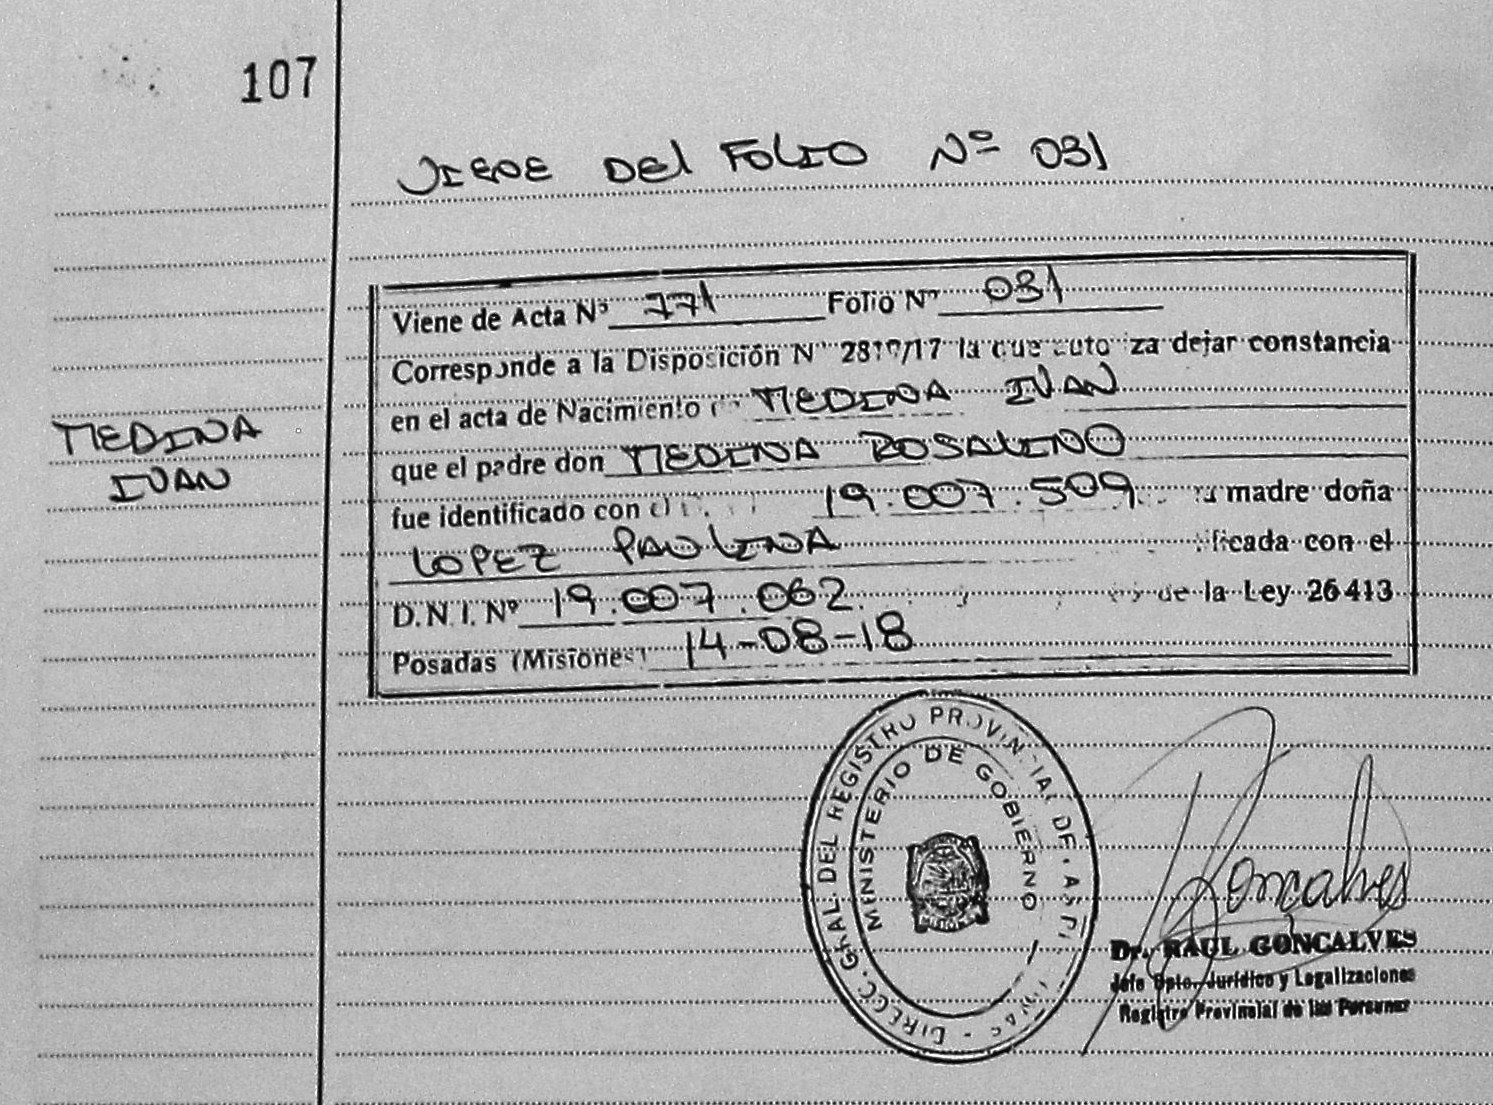 107
VIENE DEL FOLIO Nº 031
Viene de Acta Nº 771 Folio Nº 031
Corresponde a la Disposición Nº /17 la que autoriza dejar constancia
en el acta de Nacimiento MEDINA IVAN
que el padre don MEDINA ROSALINO
MEDINA
IVAN
fue identificado con el 19.007.509 madre doña
LOPEZ PAULINA con el
D.N.I. Nº 19.007.062 de la Ley 26413
Posadas (Misiones) 14-08-18
DIRECC. GRAL. DEL REGISTRO PROVINCIAL DE LAS
MINISTERIO DE GOBIERNO
Goncalves
Dr. RAUL GONCALVES
Jefe Dpto. Jurídico y Legalizaciones
Registro Provincial de las Personas